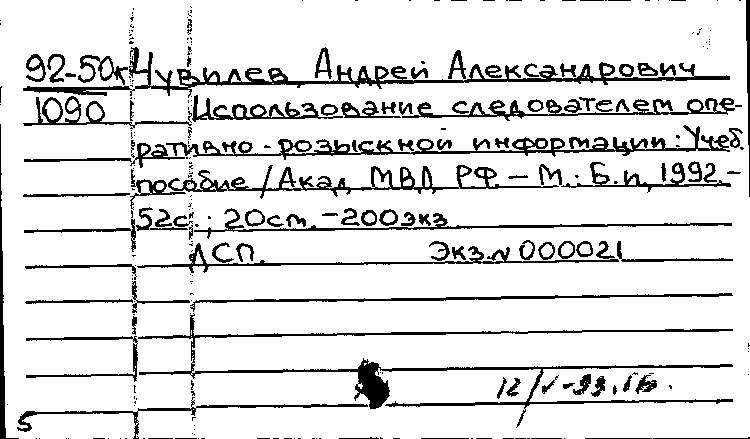 92-50к Чувилев, Андрей Александрович
1090 Использование следователем опе-
ративно-розыскной информации: Учеб.
пособие / Акад. МВД РФ. - М.: Б.и., 1992.-
52с.; 20см. - 200экз.
ДСП. Экз. № 000021
5